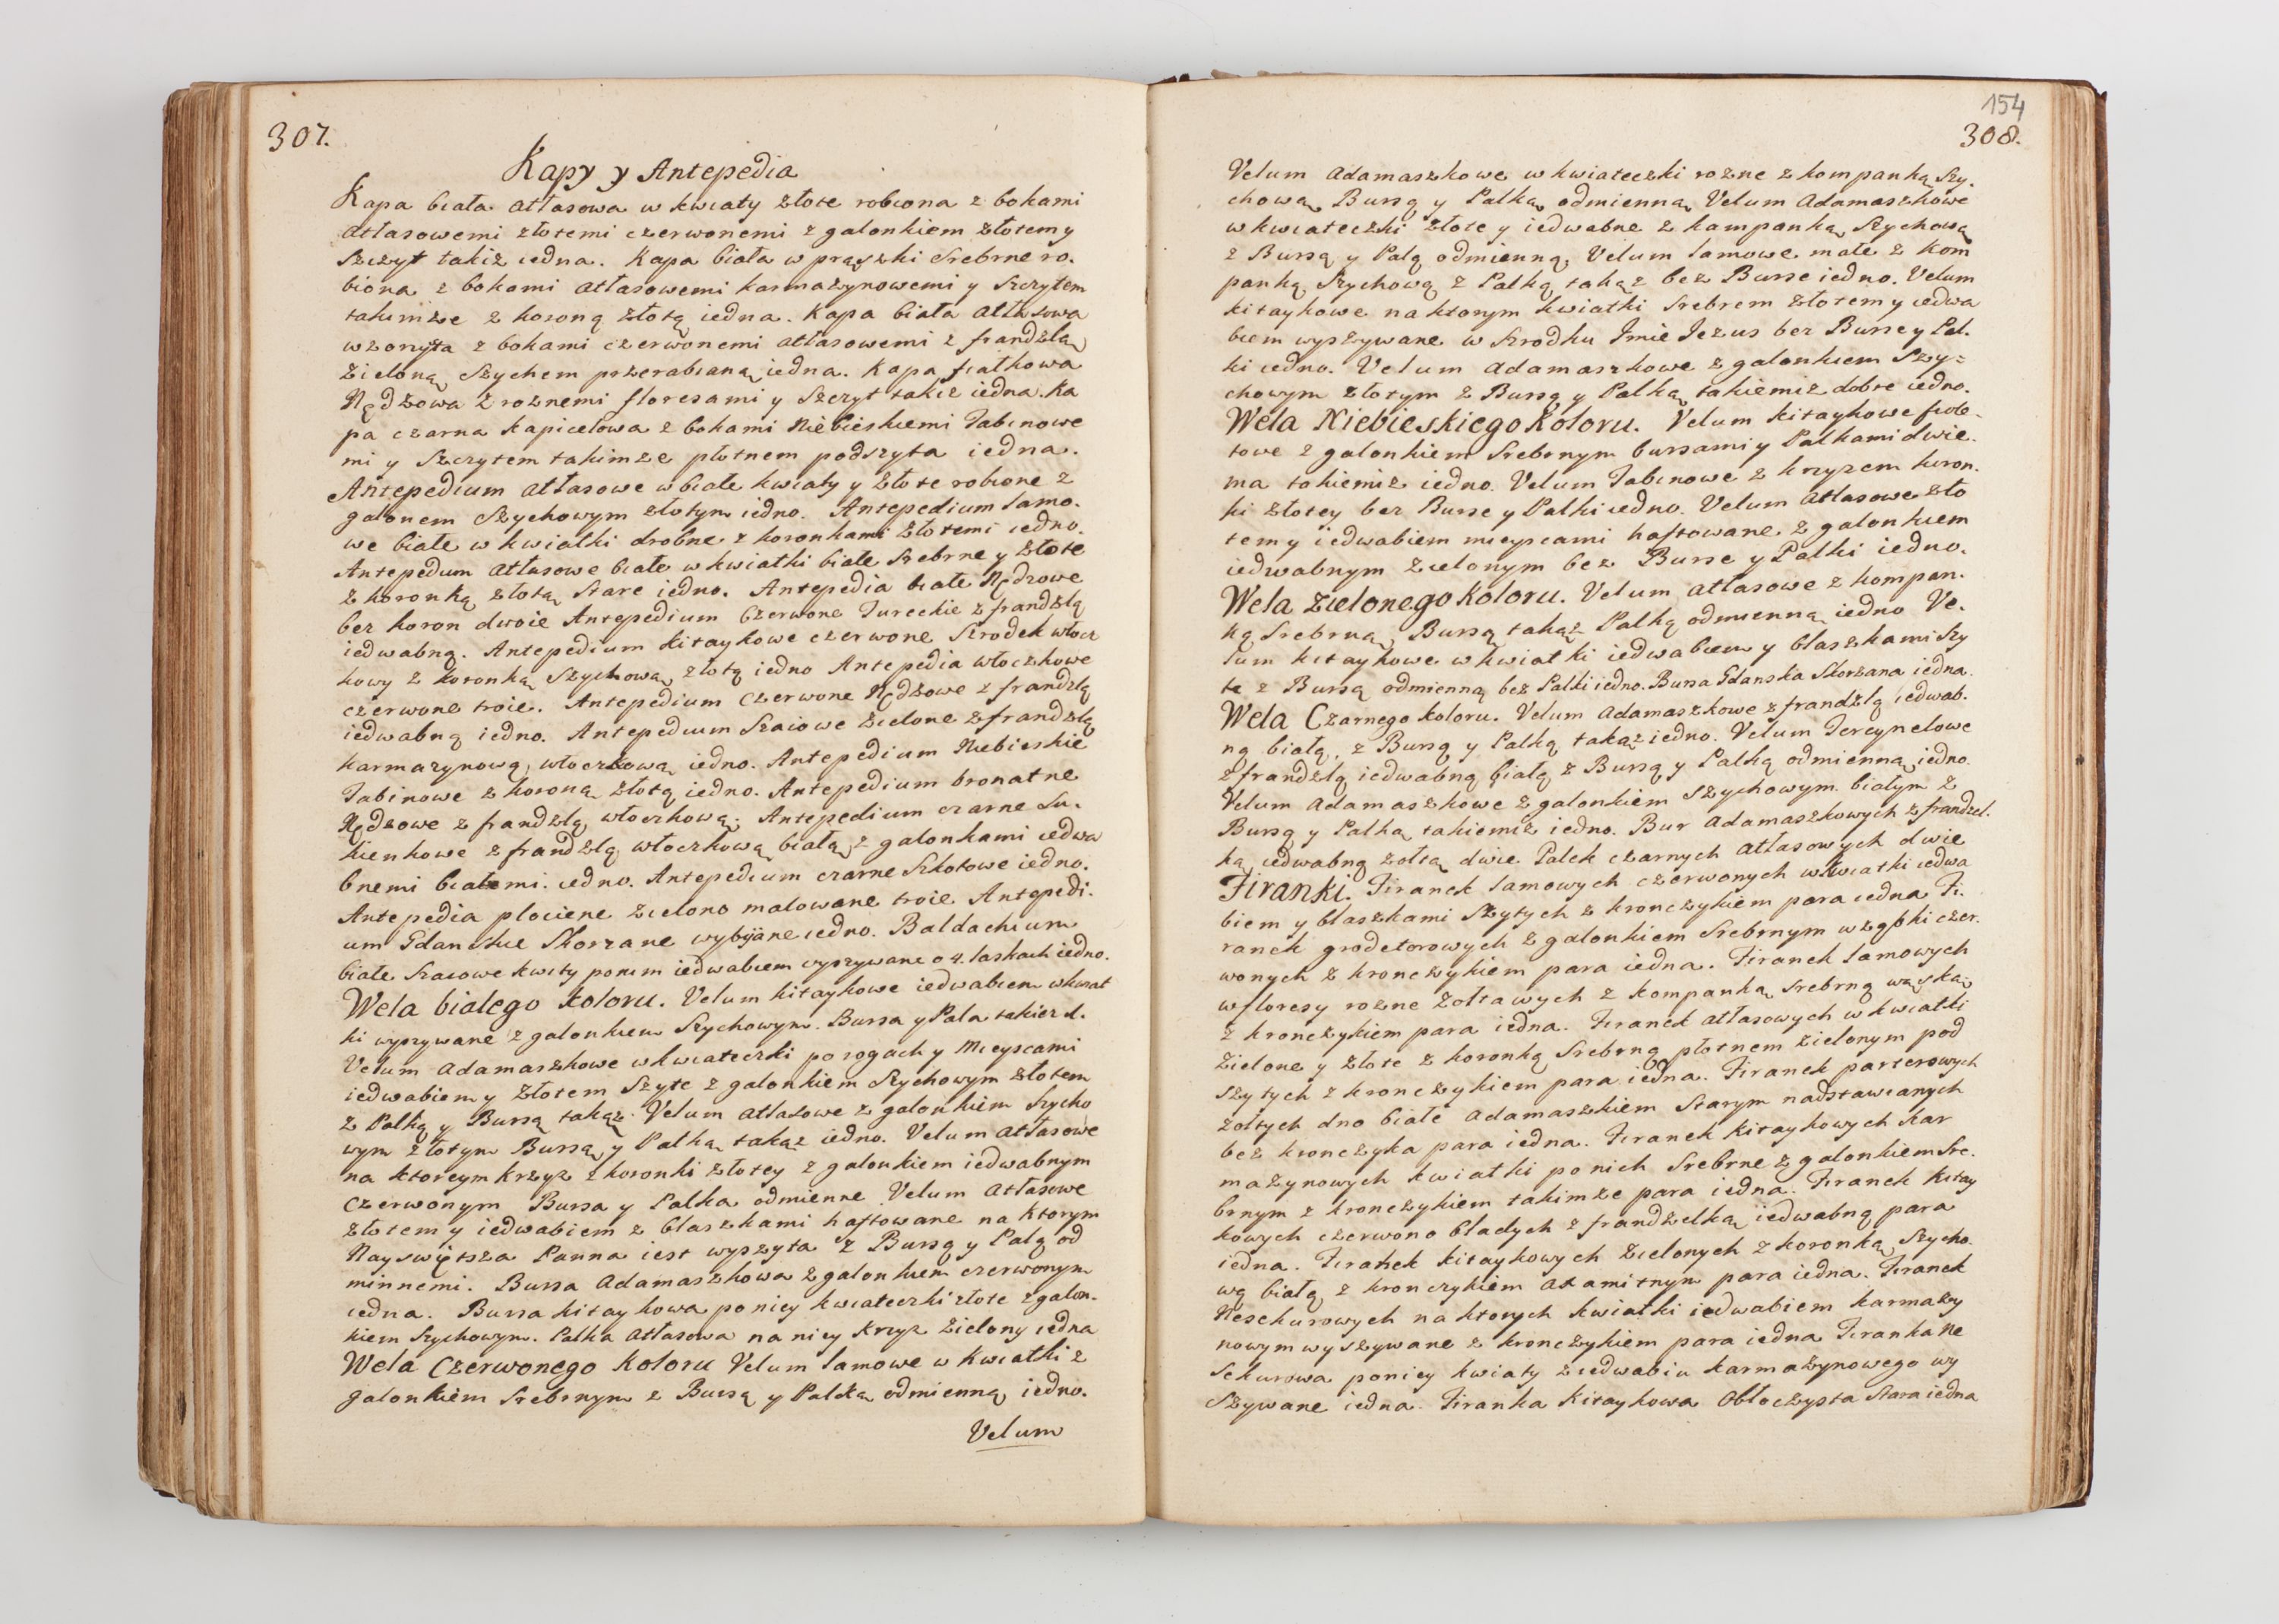 307.
Kapy y Antepedia
Kapa biała atłasowa w kwiaty złote robiona z bokami
atłasowemi złotemi czerwonemi z galonkiem złotem y
Szczyt takiż iedna. Kapa biała w prążki srebrne ro.
biona z bokami atłasowemi karmazynowemi y Szczytem
takimże z koroną złotą iedna. Kapa biała atłasowa
wzorzysta z bokami czerwonemi atłasowemi z frandzlą
zieloną Szychem przerabianą iedna. Kapa fiałkowa
Rędzowa z roznemi floresami y Szczyt takiż iedna. Ka
pa czarna kapicelowa z bokami Niebieskiemi Tabinowe
mi y Szczytem takimże płotnem podszyta iedna.
Antepedium atłasowe w białe kwiaty y złote robione z
galonem Szychowym złotym iedno. Antepedium lamo.
we białe w kwiatki drobne z koronkami złotemi iedno.
Antepedium atłasowe białe w kwiatki białe Srebrne y złote
z koronką złotą Stare iedno. Antepedia białe Rędzowe
bez koron dwoie Antepedium Czerwone Tureckie z frandzlą
iedwabną. Antepedium kitaykowe czerwone Szrodek włocz
kowy z koronką Szychową złotą iedno Antepedia włoczkowe
czerwone troie. Antepedium Czerwone Rędzowe z frandzlą
iedwabną iedno. Antepedium Szaiowe zielone z frandzlą
karmazynową włoczkową iedno. Antepedium Niebieskie
Tabinowe z koroną złotą iedno. Antepedium bronatne
Rędzowe z frandzlą włoczkową. Antepedium czarne Su.
kienkowe z frandzlą włoczkową białą z galonkami iedwa
bnemi białemi. iedno. Antepedium czarne Szkotowe iedno.
Antepedia płociene zielono malowane troie Antepedi.
um Gdanskie Skorzane wybijane iedno. Baldachium
białe Szaiowe kwity ponim iedwabiem wyszywane o 4. laskach iedno.
Wela bialego koloru. Velum kitaykowe iedwabiem w kwiat
ki wyszywane z galonkiem Szychowym. Bursa y Pala takież d.
Velum adamaszkowe w kwiateczki po rogach y Mieyscami
iedwabiem y złotem Szyte z galonkiem Szychowym złotem
z Palką y Bursą takąż. Velum atłasowe z galonkiem Szycho
wym złotym Bursą y Palką takąż iedno. Velum atłasowe
na ktoreym krzyż z koronki złotey z galonkiem iedwabnym
czerwonym Bursa y Palka odmienne Velum atłasowe
złotem y iedwabiem z blaszkami haftowane na ktorym
Nayswiętsza Panna iest wyszyta z Bursą y Palą od
minnemi. Bursa adamaszkowa z galonkiem czerwonym
iedna. Bursa kitaykowa po niey kwiateczki złote z galon.
kiem Szychowym. Palka atłasowa na niey krzyż zielony iedna
Wela Czerwonego koloru Velum lamowe w kwiatki z
galonkiem Srebrnym z Bursą y Palką odmienną iedno.
Velum
154
308.
Velum adamaszkowe w kwiateczki rozne z kompanką Szy.
chową Bursą y Palką odmienną Velum adamaszkowe
w kwiateczki złote y iedwabne z kampanką Szychową
z Bursą y Palą odmienną. Velum lamowe małe z kom
panką Szychową z Palką takąż bez Burse iedno. Velum
kitaykowe na ktorym kwiatki Srebrem złotem y iedwa
biem wyszywane w Szrodku Imie Jezus bez Burse y Pal.
ki iedno. Velum adamaszkowe z galonkiem Szy=
chowym złotym z Bursą y Palką takiemiż dobre iedno.
Wela Niebieskiego koloru. Velum kitaykowe fiole.
towe z galonkiem Srebrnym bursami y Palkami dwie.
ma takiemiż iedno. Velum Tabinowe z krzyżem koron.
ki złotey bez Burse y Palki iedno. Velum atłasowe zło
tem y iedwabiem mieyscami haftowane z galonkiem
iedwabnym zielonym bez Burse y Palki iedno.
Wela zielonego koloru. Velum atłasowe z kompan.
ką Srebrną, Bursą takąż Palką odmienną iedno Ve.
lum kitaykowe w kwiatki iedwabiem y blaszkami Szy
te z Bursą odmienną bez Palki iedno. Bursa Gdanska Skorzana iedna.
Wela Czarnego koloru. Velum adamaszkowe z frandzlą iedwab.
ną białą, z Bursą y Palką takąż iedno. Velum Tercynelowe
z frandzlą iedwabną białą z Bursą y Palką odmienną iedno.
Velum adamaszkowe z galonkiem Szychowym białym z
Bursą y Palką takiemiż iedno. Bur adamaszkowych z frandzel.
ką iedwabną zołtą dwie Palek czarnych atłasowych dwie
Firanki. Firanek lamowych czerwonych w kwiatki iedwa
biem y blaszkami Szytych z kronczykiem para iedna Fi.
ranek grodetorowych z galonkiem Srebrnym w ząbki czer.
wonych z kronczykiem para iedna. Firanek lamowych
w floresy rozne zołtawych z kompanką Srebrną wąską
z kronczykiem para iedna. Firanek atłasowych w kwiatki
zielone y złote z koronką Srebrną płotnem zielonym pod
szytych z kronczykiem para iedna. Firanek parterowych
zołtych dno białe adamaszkiem Starym nadstawianych
bez kronczyka para iedna. Firanek kitaykowych kar
mazynowych kwiatki po nich Srebrne z galonkiem Sre.
brnym z kronczykiem takimże para iedna. Firanek kitay
kowych czerwono bladych z frandzelką iedwabną para
iedna. Firanek kitaykowych zielonych z koronką Szycho.
wą białą z kronczykiem axamitnym para iedna. Firanek
Nesekurowych na ktorych kwiatki iedwabiem karmazy
nowym wyszywane z kronczykiem para iedna Firanka Ne
sekurowa po niey kwiaty z iedwabiu karmazynowego wy
Szywane iedna. Firanka kitaykowa Obłoczysta Stara iedna